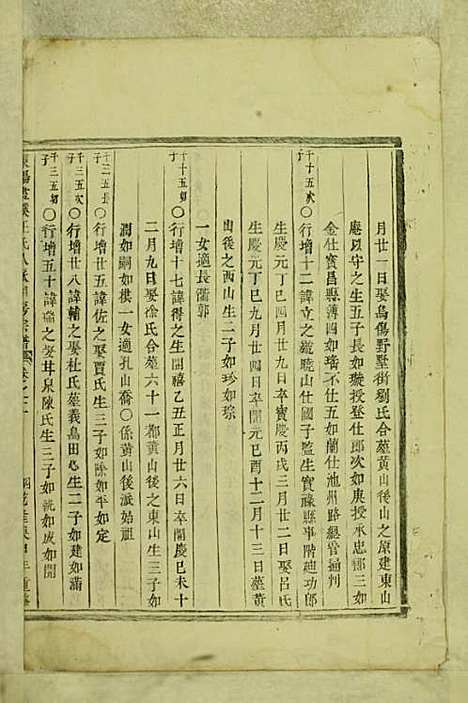 月廿一日娶烏傷野墅街劉氏合塟黄山後山之原建東山
廨以守之生五子長如璇授登仕郎次如庚授承忠郎三如
金仕寳昌縣薄四如璠不仕五如蘭仕池州路緫管通判
千十五次子〇行增十二諱立之號曉山仕國子監生寳祿縣事階迪功郎
生慶元丁巳四月廿九日卒寳慶丙戌三月廿八日娶呂氏
生慶元丁巳九月廿四日卒開元己酉十二月十三日塟黄
山後之西山生二子如珍如琮
一女適長衢郭
千十五幼子〇行增十七諱得之生開禧乙丑正月廿六日卒開慶己未十
二月九日娶徐氏合塟六十一都黄山後之東山生三子如
潤如嗣如樸一女適孔山喬〇係黄山後派始祖
千三五長子〇行增廿五諱佐之娶賈氏生三子如除如平如定
千三五次子〇行增廿八諱輔之娶杜氏塟義烏田心生二子如建如滿
千三五幼子〇行增五十諱瑞之娶井泉陳氏生三子如就如成如開